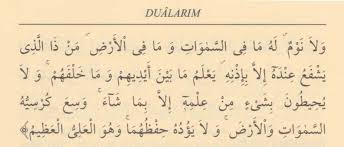 DUÂLARIM
وَلَا نَوْمٌ ۘ لَهُ مَا فِى السَّمٰوَاتِ وَ مَا فِى الْاَرْضِ ۘ مَنْ ذَا الَّذِى
يَشْفَعُ عِنْدَهُ اِلَّا بِاِذْنِهِ ۘ يَعْلَمُ مَا بَيْنَ اَيْدِيهِمْ وَ مَا خَلْفَهُمْ ۘ وَ لَا
يُحِيطُونَ بِشَىْءٍ مِنْ عِلْمِهِ اِلَّا بِمَا شَاءَ ۘ وَسِعَ كُرْسِيُّهُ
السَّمٰوَاتِ وَالْاَرْضَ ۘ وَ لَا يَؤُدُهُ حِفْظُهُمَا ۘ وَهُوَ الْعَلِىُّ الْعَظِيمُ﴾